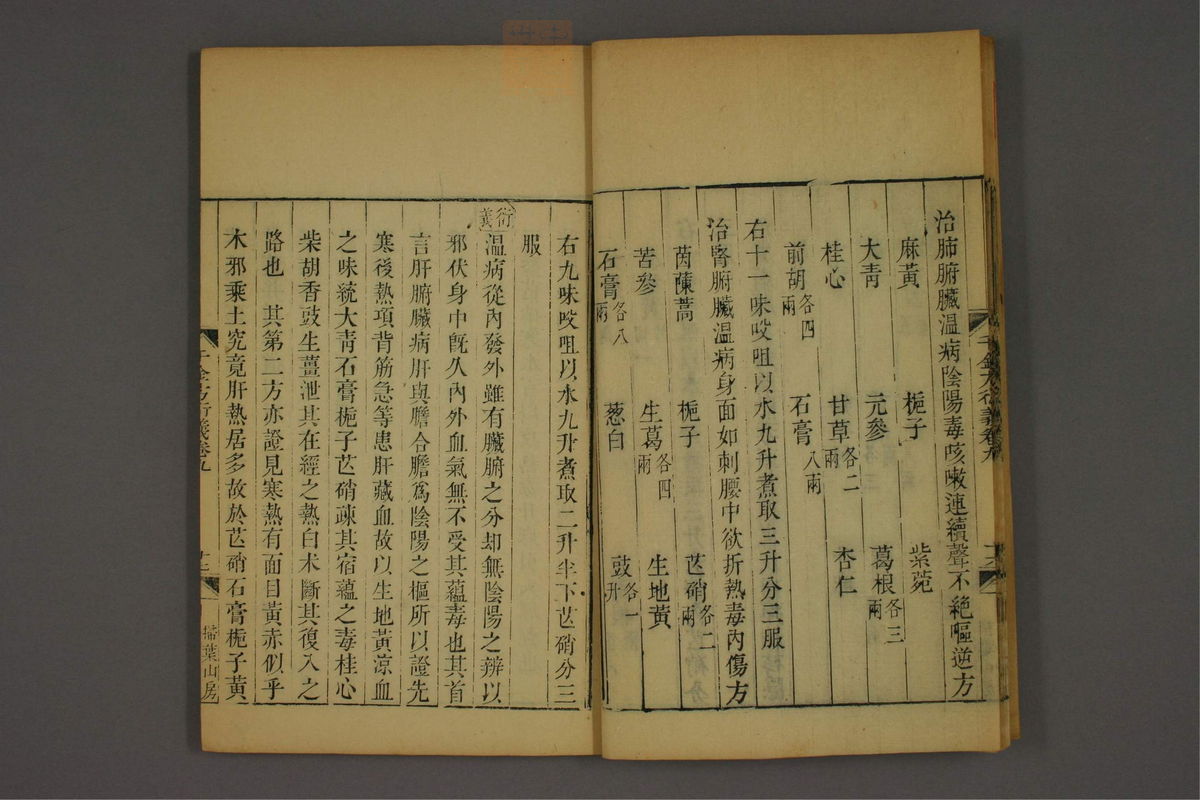 千金方衍義卷九
治肺腑臟溫病陰陽毒咳嗽連續聲不絕嘔逆方
麻黃 梔子 紫菀
大青 元參 葛根各三兩
桂心 甘草各二兩 杏仁
前胡各四兩 石膏八兩
右十一味㕮咀以水九升煮取三升分三服
治腎腑臟溫病身面如刺腰中欲折熱毒內傷方
茵蔯蒿 梔子 芒硝各二兩
苦參 生葛各四兩 生地黃
石膏各八兩 葱白 豉各一升
右九味㕮咀以水九升煮取二升半下芒硝分三
服
衍義
溫病從內發外雖有臟腑之分却無陰陽之辨以
邪伏身中既久內外血氣無不受其蘊毒也其首
言肝腑臟病肝與膽合膽爲陰陽之樞所以證先
寒後熱項背筋急等患肝藏血故以生地黃涼血
之味統大青石膏梔子芒硝疎其宿蘊之毒桂心
柴胡香豉生薑泄其在經之熱白朮斷其復入之
路也 其第二方亦證見寒熱有面目黃赤似乎
木邪乘土究竟肝熱居多故於芒硝石膏梔子黃
千金方衍義卷九
掃葉山房